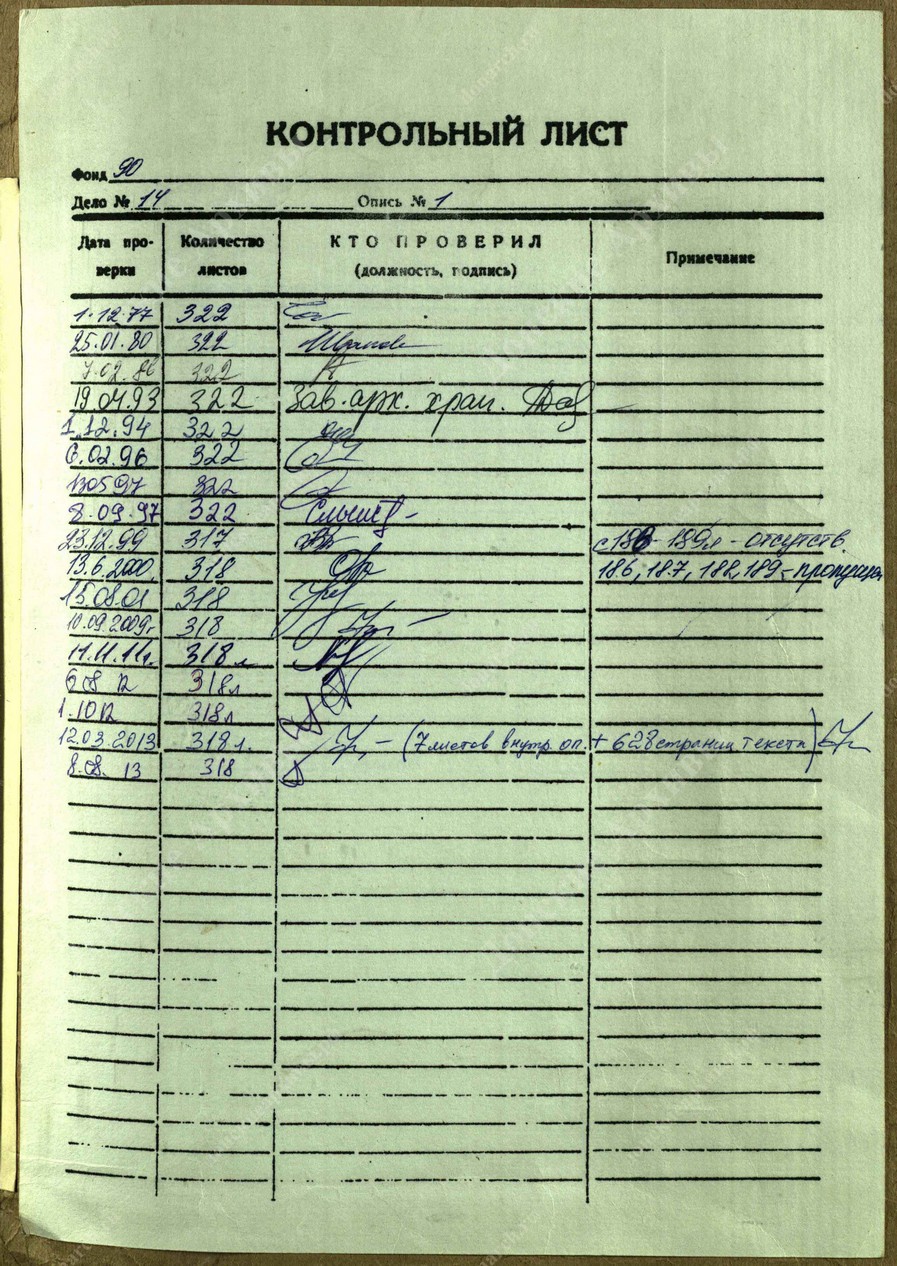 КОНТРОЛЬНЫЙ ЛИСТ
Фонд 90
Дело № 14 Опись № 1
Дата проверки Количество листов КТО ПРОВЕРИЛ (должность, подпись) Примечание
1.12.77 322
25.01.80 322
7.02.86 322
19.04.93 322 Зав. арх. хран.
1.12.94 322
6.02.96 322
130597 322
8.09.97 322
23.12.99 317 с 186-189л - отсутств.
13.6.2000. 318 186, 187, 188, 189 -
15.08.01 318
10.09.2009г 318
11.11.11г. 318 л
6 08 12 318л
1.1012 318л
12.03.2013 318л. (7листов внутр. оп. + 628страниц текста)
8.08. 13 318